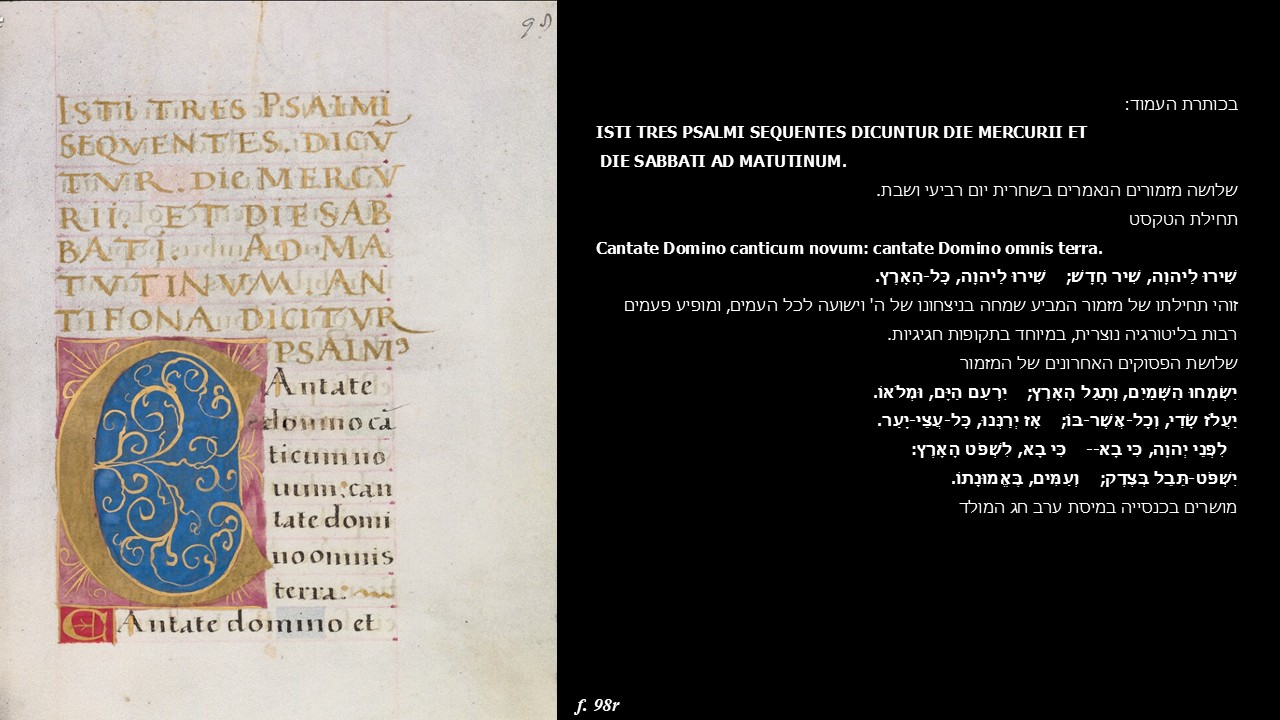 98
ISTI TRES PSALMI
SEQVENTES. DICV̄
TVR. DIE MERCV
RII. ET DIE SAB
BATI. AD MA
TVTINVM. AN
TIFONA DICITVR
PSALMꝰ
CAntate
domino cā
ticum no
uum: can
tate domi
no omnis
terra:
CAntate domino et
בכותרת העמוד:
ISTI TRES PSALMI SEQUENTES DICUNTUR DIE MERCURII ET
DIE SABBATI AD MATUTINUM.
שלושה מזמורים הנאמרים בשחרית יום רביעי ושבת.
תחילת הטקסט
Cantate Domino canticum novum: cantate Domino omnis terra.
שִׁירוּ לַיהוָה, שִׁיר חָדָשׁ; שִׁירוּ לַיהוָה, כָּל-הָאָרֶץ.
זוהי תחילתו של מזמור המביע שמחה בניצחונו של ה' וישועה לכל העמים, ומופיע פעמים
רבות בליטורגיה נוצרית, במיוחד בתקופות חגיגיות.
שלושת הפסוקים האחרונים של המזמור
יִשְׂמְחוּ הַשָּׁמַיִם, וְתָגֵל הָאָרֶץ; יִרְעַם הַיָּם, וּמְלֹאוֹ.
יַעֲלֹז שָׂדַי, וְכָל-אֲשֶׁר-בּוֹ; אָז יְרַנְּנוּ, כָּל-עֲצֵי-יָעַר.
לִפְנֵי יְהוָה, כִּי בָא-- כִּי בָא, לִשְׁפֹּט הָאָרֶץ:
יִשְׁפֹּט-תֵּבֵל בְּצֶדֶק; וְעַמִּים, בֶּאֱמוּנָתוֹ.
מושרים בכנסייה במיסת ערב חג המולד
f. 98r